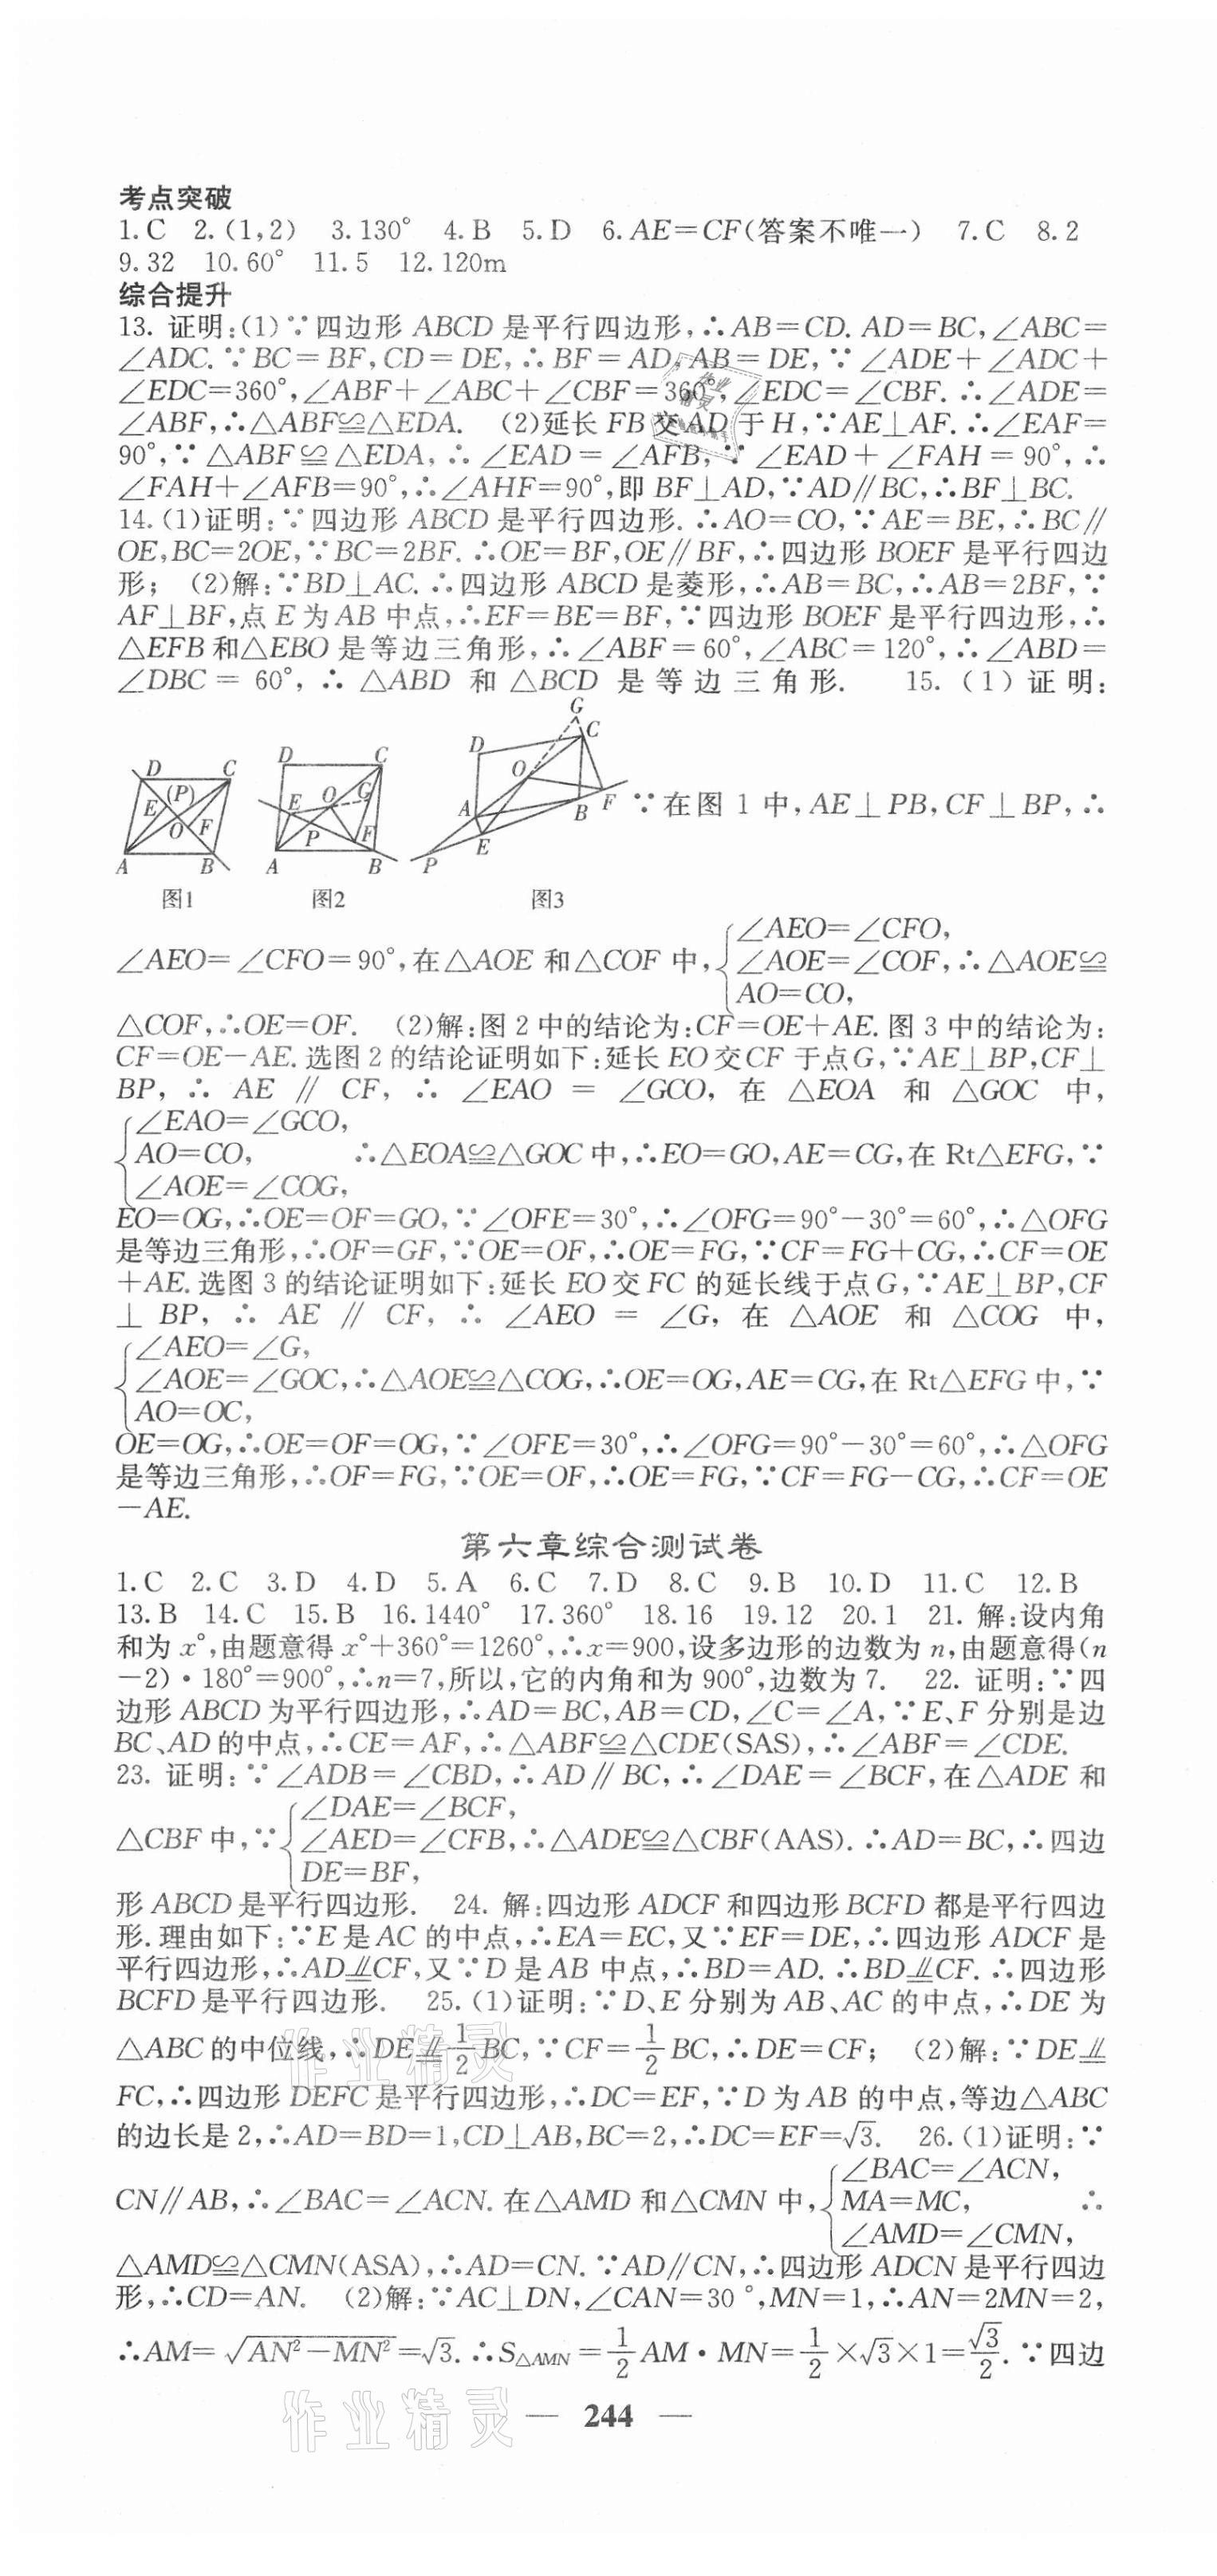 考点突破
1.C 2.(1,2) 3.130° 4.B 5.D 6.AE=CF(答案不唯一) 7.C 8.2
9.32 10.60° 11.5 12.120m
综合提升
13. 证明:(1)∵四边形 ABCD 是平行四边形,∴AB=CD. AD=BC,∠ABC=
∠ADC.∵BC=BF,CD=DE,∴BF=AD,AB=DE,∵∠ADE+∠ADC+
∠EDC=360°,∠ABF+∠ABC+∠CBF=360°,∠EDC=∠CBF.∴∠ADE=
∠ABF,∴△ABF≌△EDA. (2)延长 FB 交 AD 于 H,∵AE⊥AF.∴∠EAF=
90°,∵△ABF≌△EDA,∴∠EAD=∠AFB,∵∠EAD+∠FAH=90°,∴
∠FAH+∠AFB=90°,∴∠AHF=90°,即 BF⊥AD,∵AD∥BC,∴BF⊥BC.
14.(1)证明:∵四边形 ABCD 是平行四边形.∴AO=CO,∵AE=BE,∴BC∥
OE,BC=2OE,∵BC=2BF.∴OE=BF,OE∥BF,∴四边形 BOEF 是平行四边
形; (2)解:∵BD⊥AC.∴四边形 ABCD 是菱形,∴AB=BC,∴AB=2BF,∵
AF⊥BF,点 E 为 AB 中点,∴EF=BE=BF,∵四边形 BOEF 是平行四边形,∴
△EFB 和△EBO 是等边三角形,∴∠ABF=60°,∠ABC=120°,∴∠ABD=
∠DBC=60°,∴△ABD 和△BCD 是等边三角形. 15.(1)证明:
D C (P) E O F A B
图1
D C E O G P F A B
图2
G D C O A B F E P
图3
∵在图 1 中,AE⊥PB,CF⊥BP,∴
∠AEO=∠CFO=90°,在△AOE 和△COF 中,{∠AEO=∠CFO,
∠AOE=∠COF,∴△AOE≌
AO=CO,
△COF,∴OE=OF. (2)解:图 2 中的结论为:CF=OE+AE.图 3 中的结论为:
CF=OE-AE.选图 2 的结论证明如下:延长 EO 交 CF 于点 G,∵AE⊥BP,CF⊥
BP,∴AE∥CF,∴∠EAO=∠GCO,在△EOA 和△GOC 中,
{∠EAO=∠GCO,
AO=CO, ∴△EOA≌△GOC 中,∴EO=GO,AE=CG,在 Rt△EFG,∵
∠AOE=∠COG,
EO=OG,∴OE=OF=GO,∵∠OFE=30°,∴∠OFG=90°-30°=60°,∴△OFG
是等边三角形,∴OF=GF,∵OE=OF,∴OE=FG,∵CF=FG+CG,∴CF=OE
+AE.选图 3 的结论证明如下:延长 EO 交 FC 的延长线于点 G,∵AE⊥BP,CF
⊥BP,∴AE∥CF,∴∠AEO=∠G,在△AOE 和△COG 中,
{∠AEO=∠G,
∠AOE=∠GOC,∴△AOE≌△COG,∴OE=OG,AE=CG,在 Rt△EFG 中,∵
AO=OC,
OE=OG,∴OE=OF=OG,∵∠OFE=30°,∴∠OFG=90°-30°=60°,∴△OFG
是等边三角形,∴OF=FG,∵OE=OF,∴OE=FG,∵CF=FG-CG,∴CF=OE
-AE.
第六章综合测试卷
1.C 2.C 3.D 4.D 5.A 6.C 7.D 8.C 9.B 10.D 11.C 12.B
13.B 14.C 15.B 16.1440° 17.360° 18.16 19.12 20.1 21. 解:设内角
和为 x°,由题意得 x°+360°=1260°,∴x=900,设多边形的边数为 n,由题意得(n
-2)·180°=900°,∴n=7,所以,它的内角和为 900°,边数为 7. 22. 证明:∵四
边形 ABCD 为平行四边形,∴AD=BC,AB=CD,∠C=∠A,∵E、F 分别是边
BC、AD 的中点,∴CE=AF,∴△ABF≌△CDE(SAS),∴∠ABF=∠CDE.
23. 证明:∵∠ADB=∠CBD,∴AD∥BC,∴∠DAE=∠BCF,在△ADE 和
△CBF 中,∵{∠DAE=∠BCF,
∠AED=∠CFB,∴△ADE≌△CBF(AAS).∴AD=BC,∴四边
DE=BF,
形 ABCD 是平行四边形. 24. 解:四边形 ADCF 和四边形 BCFD 都是平行四边
形.理由如下:∵E 是 AC 的中点,∴EA=EC,又∵EF=DE,∴四边形 ADCF 是
平行四边形,∴AD⫽CF,又∵D 是 AB 中点,∴BD=AD.∴BD⫽CF.∴四边形
BCFD 是平行四边形. 25.(1)证明:∵D、E 分别为 AB、AC 的中点,∴DE 为
△ABC 的中位线,∴DE⫽1/2BC,∵CF=1/2BC,∴DE=CF; (2)解:∵DE⫽
FC,∴四边形 DEFC 是平行四边形,∴DC=EF,∵D 为 AB 的中点,等边△ABC
的边长是 2,∴AD=BD=1,CD⊥AB,BC=2,∴DC=EF=√3. 26.(1)证明:∵
CN∥AB,∴∠BAC=∠ACN.在△AMD 和△CMN 中,{∠BAC=∠ACN,
MA=MC, ∴
∠AMD=∠CMN,
△AMD≌△CMN(ASA),∴AD=CN.∵AD∥CN,∴四边形 ADCN 是平行四边
形,∴CD=AN. (2)解:∵AC⊥DN,∠CAN=30°,MN=1,∴AN=2MN=2,
∴AM=√(AN²-MN²)=√3.∴S△AMN=1/2AM·MN=1/2×√3×1=√3/2.∵四边
— 244 —
作业精灵
作业精灵